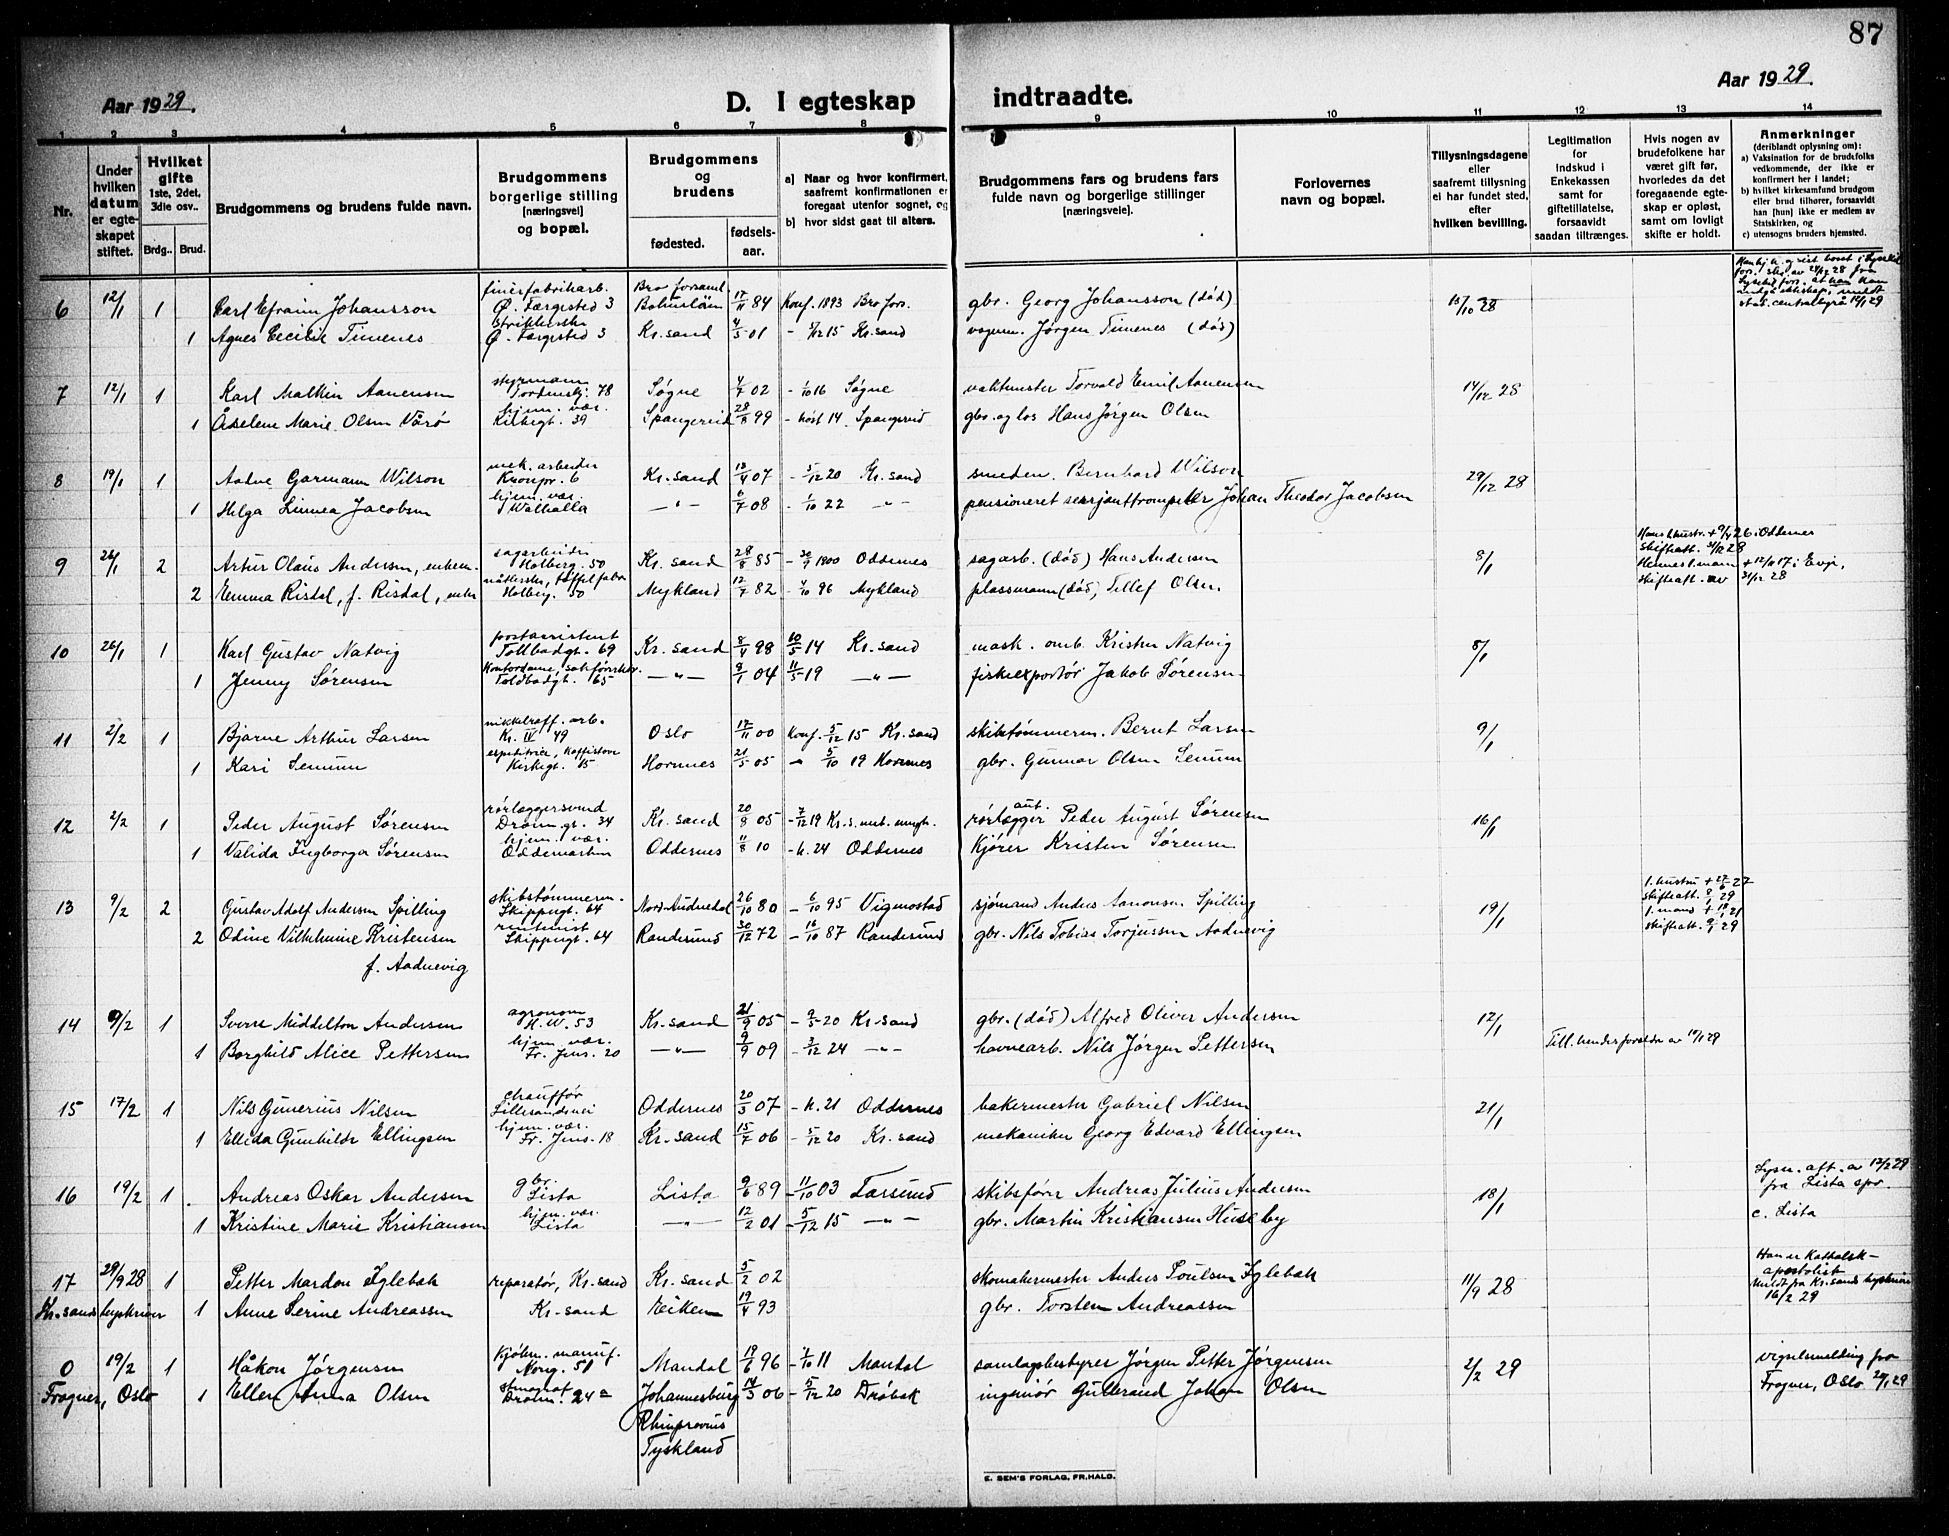 87
Aar 1929.
D. I egteskap indtraadte.
Aar 1929.
1 2 3 4 5 6 7 8 9 10 11 12 13 14
Nr.
Under hvilken datum er egteskapet stiftet.
Hvilket gifte 1ste, 2det, 3die osv..
Brdg.. Brud.
Brudgommens og brudens fulde navn.
Brudgommens borgerlige stilling [næringsvei] og bopæl.
Brudgommens og brudens
fødested.
fødselsaar.
a] Naar og hvor konfirmert, saafremt konfirmationen er foregaat utenfor sognet, og
b) hvor sidst gaat til alters.
Brudgommens fars og brudens fars fulde navn og borgerlige stillinger [næringsveie].
Forlovernes navn og bopæl.
Tillysningsdagene eller saafremt tillysning ei har fundet sted, efter hvilken bevilling.
Legitimation for Indskud i Enkekassen samt for giftetillatelse, forsaavidt saadan tiltrænges.
Hvis nogen av brudefolkene har været gift før, hvorledes da det foregaaende egteskap er opløst, samt om lovligt skifte er holdt.
Anmerkninger (deriblandt oplysning om):
a) Vaksination for de brudefolks vedkommende, der ikke er konfirmert her i landet;
b) hvilket kirkesamfund brudgom eller brud tilhører, forsaavidt han [hun] ikke er medlem av Statskirken, og
c) utensogns bruders hjemsted.
6 12/1 1 Carl Efraim Johansson finérfabrikarb. Ø. Færgested 3 Bro forsaml. Bohuslän 17/11 84 Konf. 1893 Bro fors. gbr. Georg Johansson (død) 15/10 28
1 Agnes Cecilie Timenes strikkerske Ø. Færgested 3 Kr.sand 4/5 01 - 5/12 15 Kr.sand vognm. Jørgen Timenes (død)
7 12/1 1 Karl Mathin Aanensen styrmann Tordenskj. 78 Søgne 4/7 02 - 1/10 16 Søgne vaktmester Torvald Emil Aanensen 14/12 28
1 Adelene Marie Olsen Vårø hjem. vær. Kirkegt. 39 Spangereid 28/8 99 - høst 14. Spangereid gbr. og los Hans Jørgen Olsen
8 19/1 1 Aadne Garmann Wilson mek. arbeider Kronpr. 6 Kr.sand 13/4 07 - 5/12 20 Kr.sand smeden. Bernhard Wilson 29/12 28
1 Helga Linnea Jacobsen hjem. vær. Walhalla —"— 6/7 08 - 1/10 22 —"— pensioneret serjanttrompeter Johan Theodor Jacobsen
9 26/1 2 Artur Olaus Andersen, enkem. sagarbeider Holberg. 50 Kr. sand 28/8 85 - 30/9 1900 Oddernes sagarb. (død) Hans Andersen 8/1 Hans 1. hustru + 9/4 26 i Oddernes skifteatt. 31/12 28
2 Emma Risdal, f. Risdal, enke Holberg. 50 Mykland 12/7 82 - 4/10 96 Mykland plassmann (død) Tellef Olsen Hennes 1. mann + 12/11 17 i Evje, skifteatt. av 31/12 28
10 26/1 1 Karl Gustav Natvig postassistent Tollbodgt. 69 Kr. sand 8/4 98 10/5 14 Kr. sand mask. omb. Kristen Natvig 8/1
1 Jenny Sørensen Kontordame, Toldbodgt. 65 —"— 9/1 04 11/5 19 —"— fiskeexportør Jakob Sørensen
11 2/2 1 Bjarne Arthur Larsen nikkelraff. arb. Kr. IV 49 Oslo 17/11 00 Konf. 5/12 15 Kr.sand skibstømmerm. Bernt Larsen 9/1
1 Kari Senum Kirkegt. 15 Hornnes 21/5 05 " 5/10 19 Hornnes gbr. Gunnar Olsen Senum
12 2/2 1 Peder August Sørensen rørlæggersvend Dronn. gt. 34 Kr. sand 20/8 05 - 7/12 19 Kr.s. met. mngh. aut. rørlægger Peder August Sørensen 16/1
1 Valida Ingborga Sørensen hjem. vær. Oddemarken Oddernes 11/8 10 - h. 24 Oddernes Kjører Kristen Sørensen
13 9/2 2 Gustav Adolf Andersen Spilling skibstømmerm. Skippergt. 64 Nord-Audnedal 26/10 80 - 6/10 95 Vigmostad sjømand Anders Aanonsen Spilling 19/1 1. hustru + 27/6 27 skifteatt. 8/1 29
2 Odine Vilhelmine Kristensen rentenist Skippergt. 64 Randesund 30/12 72 - 16/10 87 Randesund gbr. Nils Tobias Torjussen Aadnevig 1. mand + 21 skifteatt. 9/1 29
f. Aadnevig
14 9/2 1 Sverre Middelton Andersen agronom H. W. 53 Kr.sand 21/9 05 - 9/5 20 Kr.sand gbr. (død) Alfred Oliver Andersen 12/1
1 Borghild Alice Pettersen hjem. vær. Fr. Jens. 20 —"— 9/9 09 - 3/12 24 —"— havnearb. Nils Jørgen Pettersen Till. hendes foreldre av 19/1 29
15 17/2 1 Nils Gunerius Nilsen chauffør Lillesandsvei Oddernes 20/3 07 - h. 21 Oddernes bakermester Gabriel Nilsen 21/1
1 Ellida Gunhilde Ellingsen hjem. vær. Fr. Jens. 18 Kr. sand 15/7 06 - 5/12 20 Kr. sand mekaniker Georg Edvard Ellingsen
16 19/2 1 Andreas Oskar Andersen gbr. Lista Lista 9/6 89 - 11/10 03 Farsund skibsfører Andreas Julius Andersen 18/1 Lysn. att. av 12/2 29 fra Lista spr.
1 Kristine Marie Kristiansen hjem. vær. Lista —"— 12/2 01 - 5/12 15 —"— gbr. Martin Kristiansen Huseby c. Lista
17 29/9 28 1 Petter Mardon Iglebæk reparatør, Kr. sand Kr. sand 5/2 02 skomakermester Anders Poulsen Iglebæk 11/9 28 Han er Katholsk-apostolisk
Kr.sands byskriver 1 Anne Serine Andreassen Kr. sand Eiken 19/4 93 gbr. Torsten Andreassen Meldt fra Kr.sands byskriver 16/2 29
0 19/2 1 Håkon Jørgensen Kjøbm. manuf. Norg. 51 Mandal 19/6 96 - 1/10 11 Mandal samlagsbestyrer Jørgen Petter Jørgensen 2/2 29 vigselsmelding fra
Frogner, Oslo 1 Ellen Anna Olsen Dronn. 24a Johannesburg 14/3 06 - 5/12 20 Drøbak ingeniør Gulbrand Johan Olsen Frogner, Oslo 29
Rhinprovins
Tyskland
E. SEM'S FORLAG, FR.HALD.